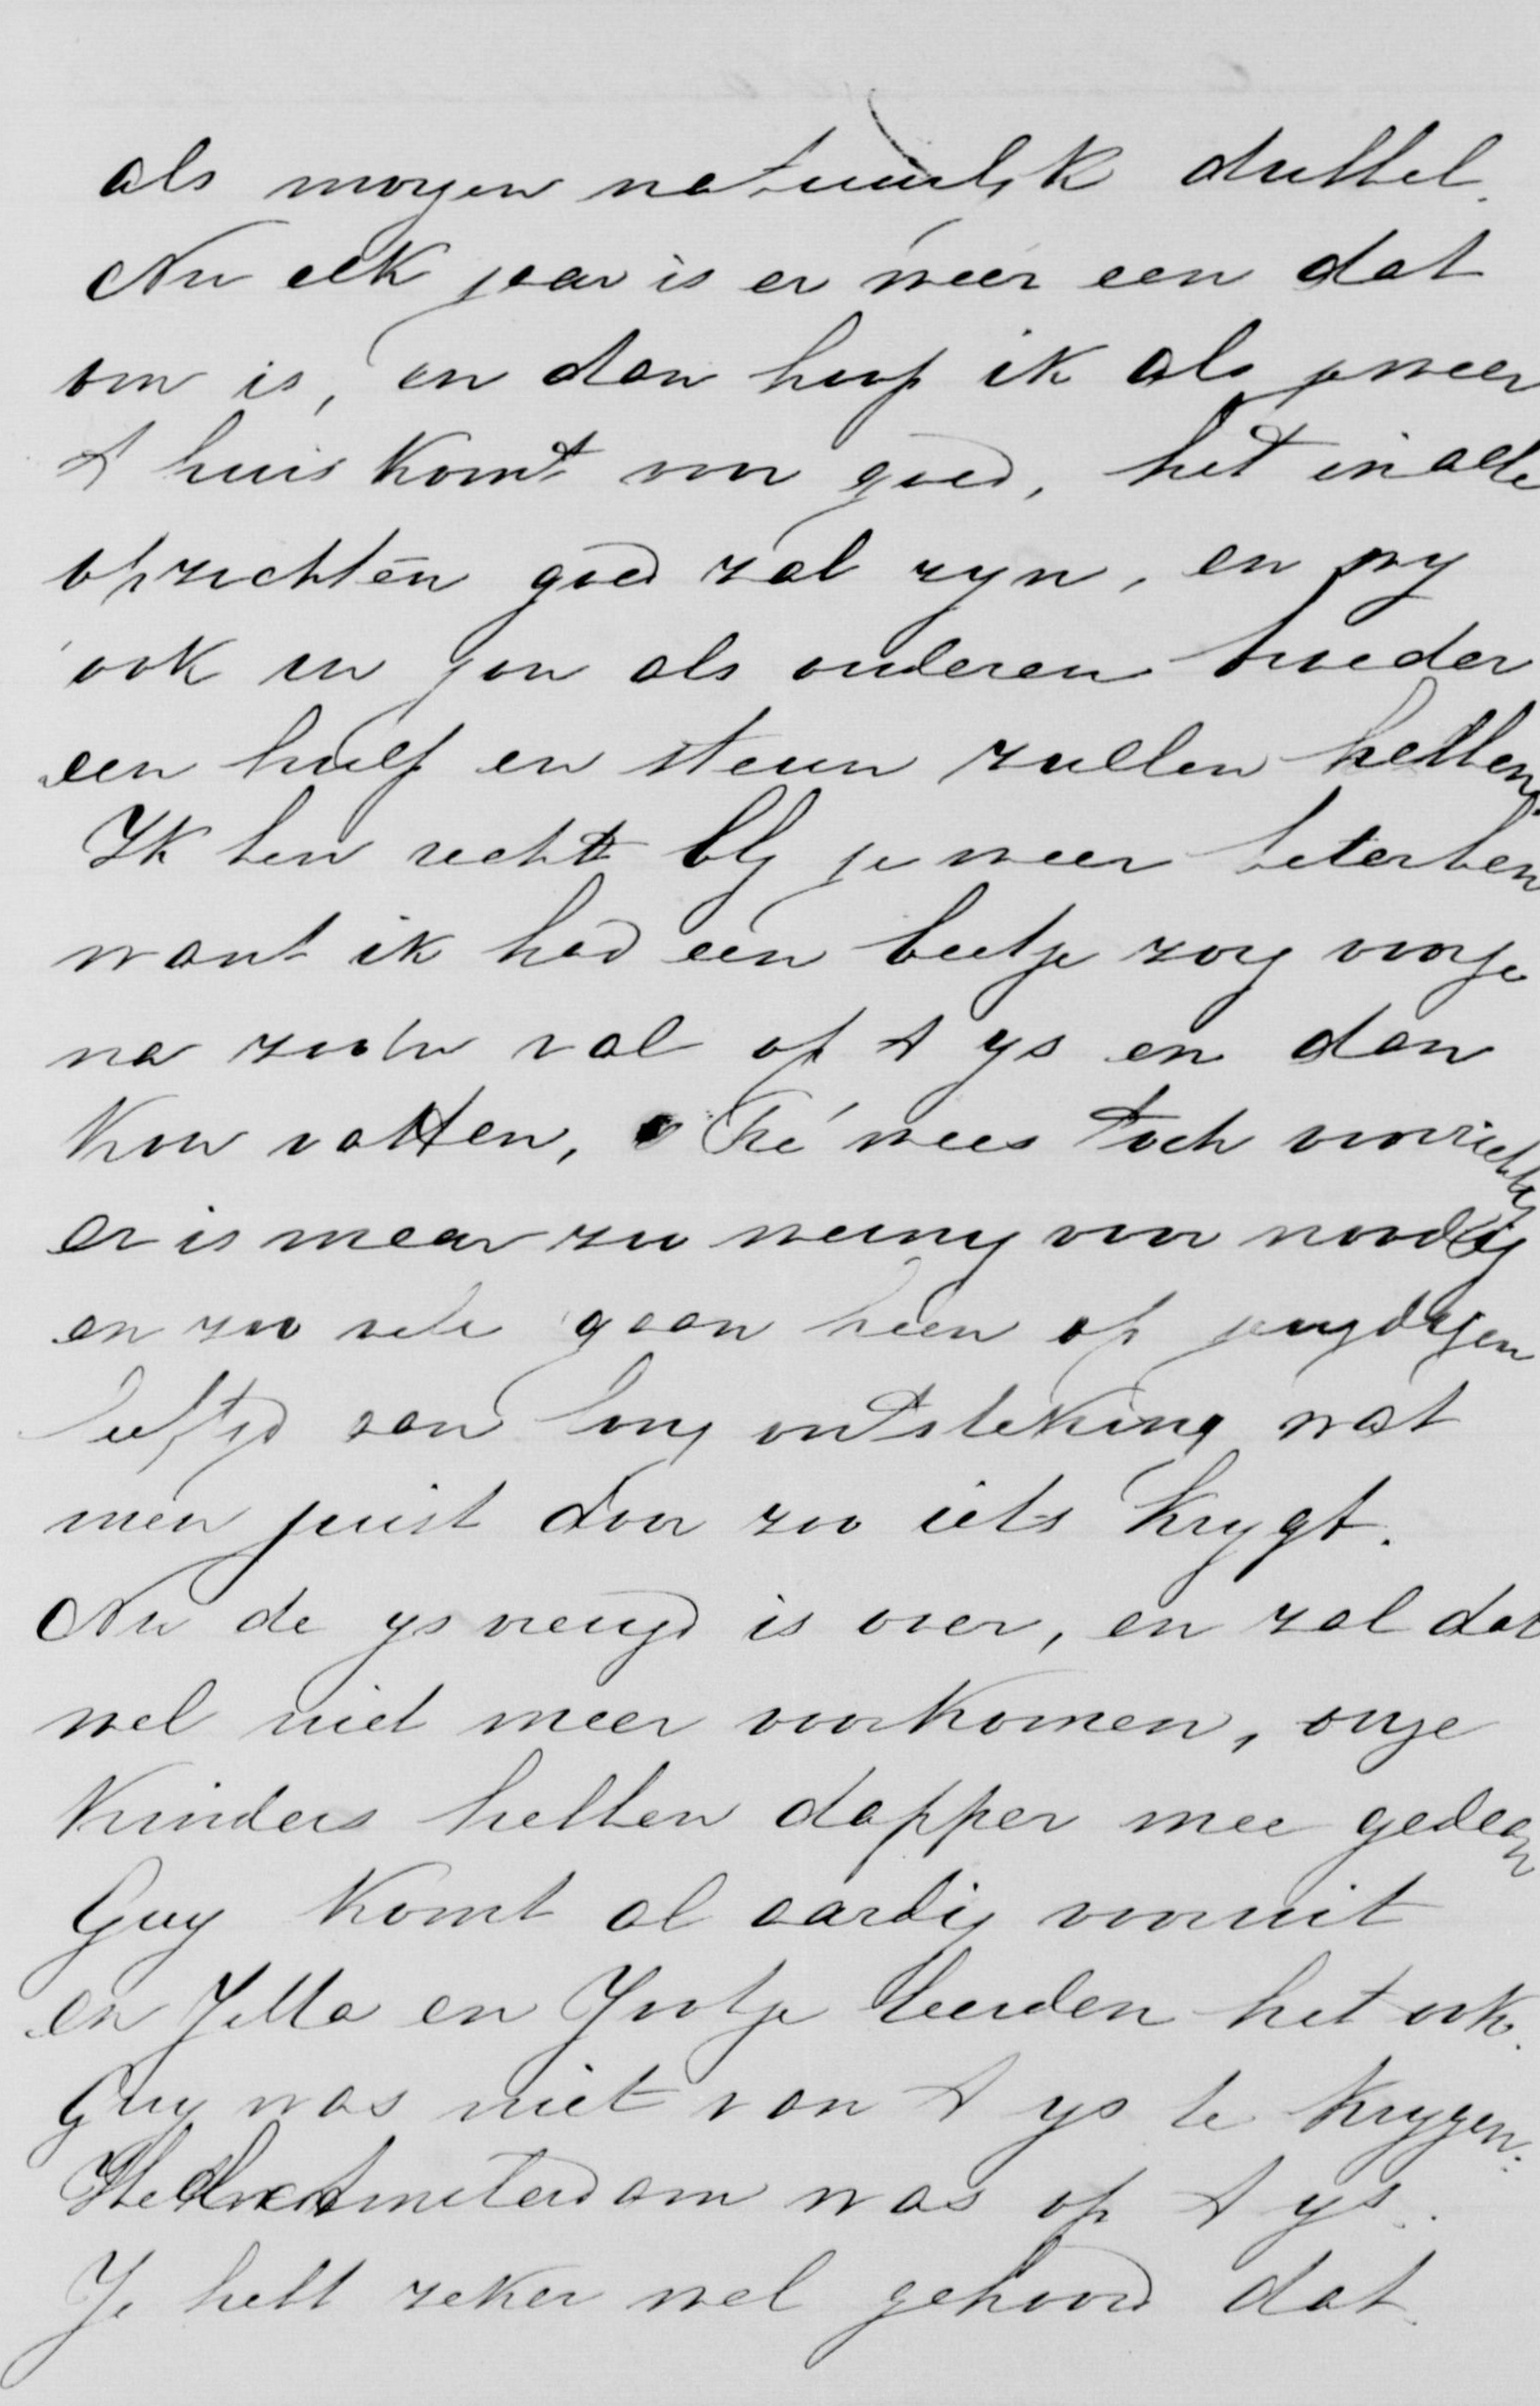 als morgen natuurlyk dubbel.
Nu elk jaar is er weer een dat
om is, en dan hoop ik als je weer
t huis komt voor goed, het in alle
opzichten goed zal zyn, en wy
ook in jou als ouderen broeder
een hulp en steun zullen hebben.
Ik ben recht bly je weer beter bent
want ik had een beetje zorg voor je
na zoo'n val op t ys en dan
kou vatten, Fré wees toch voorzichtig
er is maar zoo weinig voor noodig
en zoo vele gaan heen op jeugdigen
leeftyd aan long ontsteking wat
men juist door zoo iets krygt.
Nu de ys vreugd is over, en zal dat
wel niet meer voorkomen, onze
kinders hebben dapper mee gedaan
Guy komt al aardig vooruit
en Jella en Jootje leerden het ook.
Guy was niet van t ys te krygen.
Heel Amsterdam was op t ys.
Je hebt zeker wel gehoord dat